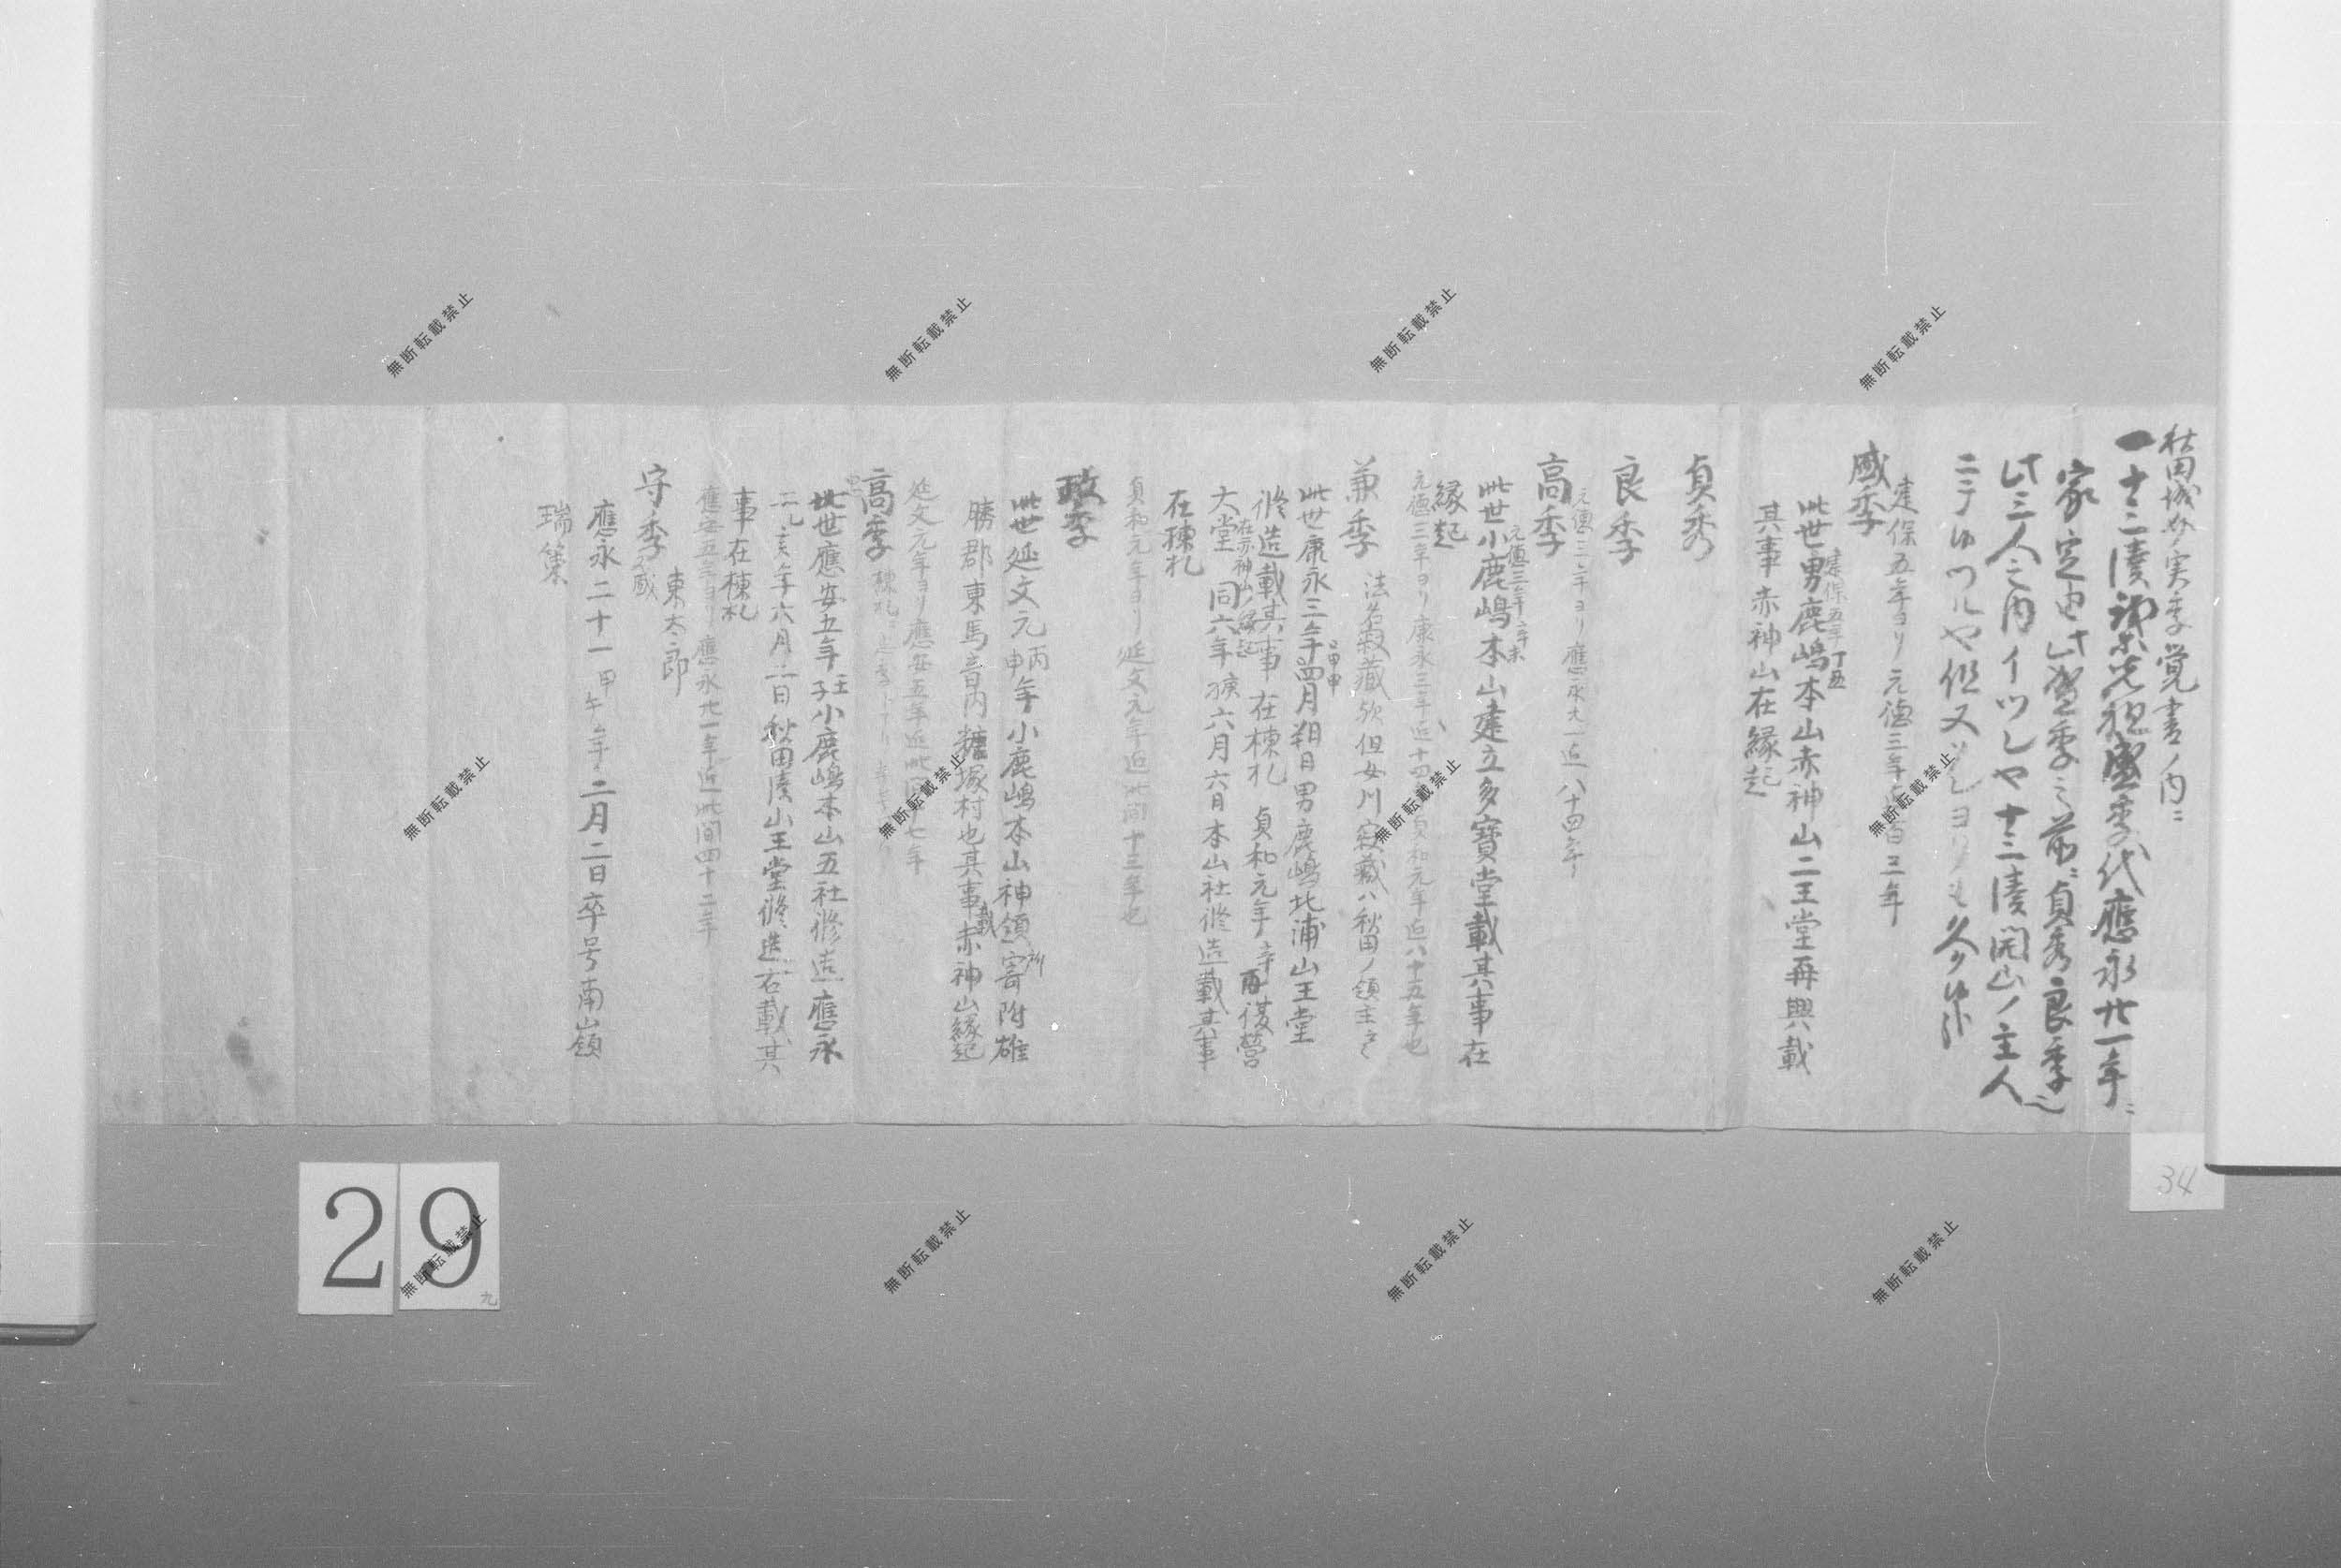 秋田城介実季覚書ノ内ニ
一十三湊
先祖盛季代應永廿一年ニ
家定由此盛季之前ニ貞秀良季
此三人之内イツレヤ十三湊開山ノ主人
ニテ
ツルヤ但又
ヨリ
建保五年ヨリ元徳三年迄百三年
盛季
建保五年丁丑
此世男鹿嶋本山赤神山二王堂再興載
其事赤神山在縁起
貞秀
良季
元徳三年ヨリ應永廿一迄八十四年
高季
元徳三年辛未
此世小鹿嶋本山建立多寶堂載其事在
縁起
元徳三年ヨリ康永三年迄十四
貞和元年迄八十五年也
兼季
法名寂蔵欤但女川寂蔵ハ秋田ノ領主也
甲申
此世康永三年四月朔日男鹿嶋北浦山王堂
修造載其事在棟札 貞和元年
再復営
在赤神山縁起
大堂 同六年
六月六日本山社修造載其事
在棟札
貞和元年ヨリ延文元年迄此間十三年也
政季
此世延文元丙申年小鹿嶋本山神領所寄附雄
勝郡東馬音内糠塚村也其事載赤神山縁起
延文元年ヨリ應安五年迄此間十七年
高季
棟札
此世應安五年壬子小鹿嶋本山五社修造應永
二乙亥年六月二日秋田湊山王堂修造右載其
事在棟札
應安五年ヨリ應永廿一年迄此間四十二年
東太郎
守季
盛
應永二十一甲午年二月二日卒号南山嶺
瑞策
34
29
九
無断転載禁止
無断転載禁止
無断転載禁止
無断転載禁止
無断転載禁止
無断転載禁止
無断転載禁止
無断転載禁止
無断転載禁止
無断転載禁止
無断転載禁止
無断転載禁止